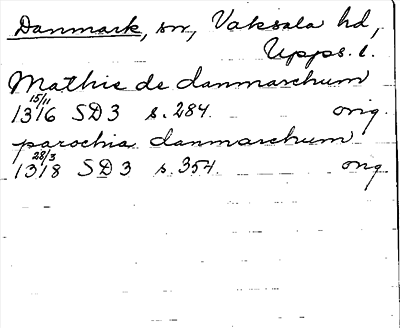 Danmark, sn, Vaksala hd,
Upps. l.
Mathis de danmarchum
15/11
1316 SD 3 s. 284. orig.
parochia danmarchum
28/3
1318 SD 3 s. 354. orig